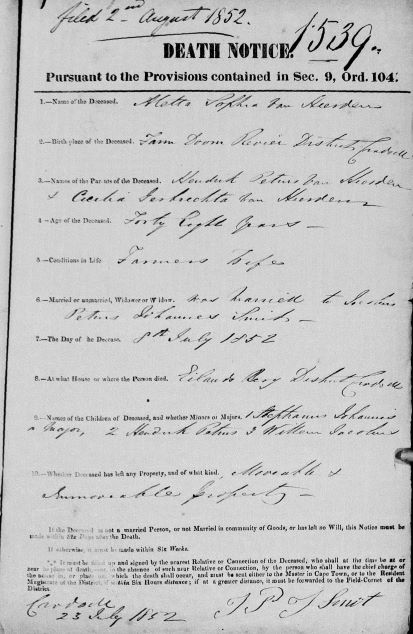 filed 2nd August 1852.
1539.
DEATH NOTICE.
Pursuant to the Provisions contained in Sec. 9, Ord. 104.
1.—Name of the Deceased. Aletta Sophia van Heerden
2.—Birth place of the Deceased. Farm Doorn Revier District Cradock
3.—Names of the Parents of the Deceased. Hendrik Petrus van Heerden
& Cecilia Gerbrechta van Heerden
4—Age of the Deceased. Forty Eight Years —
5—Conditions in Life Farmers Wife
6.—Married or unmarried, Widower or Widow. was married to Jacobus
Petrus Johannes Smit —
7.—The Day of the Decease. 8th July 1852
8.—At what House or where the Person died. Eilands Berg District Cradock
9.—Names of the Children of Deceased, and whether Minors or Majors. 1 Stephanus Johannes
a Major, 2 Hendrik Petrus 3 Willem Jacobus
10.—Whether Deceased has left any Property, and of what kind. Moveable &
Immoveable Property —
If the Deceased is not a married Person, or not Married in community of Goods, or has left no Will, this Notice must be
made within Six Days after the Death.
If otherwise, it must be made within Six Weeks.
*⁎* It must be filled up and signed by the nearest Relative or Connection of the Deceased, who shall at the time be at or
near the place of death; or in the absence of such near Relative or Connection, by the person who shall have the chief charge of
the house in, or place on which the death shall occur, and must be sent either to the Master in Cape Town, or to the Resident
Magistrate of the District, if within Six Hours distance; if at a greater distance, it must be forwarded to the Field-Cornet of the
District.
Cradock
23 July 1852
J P J Smit